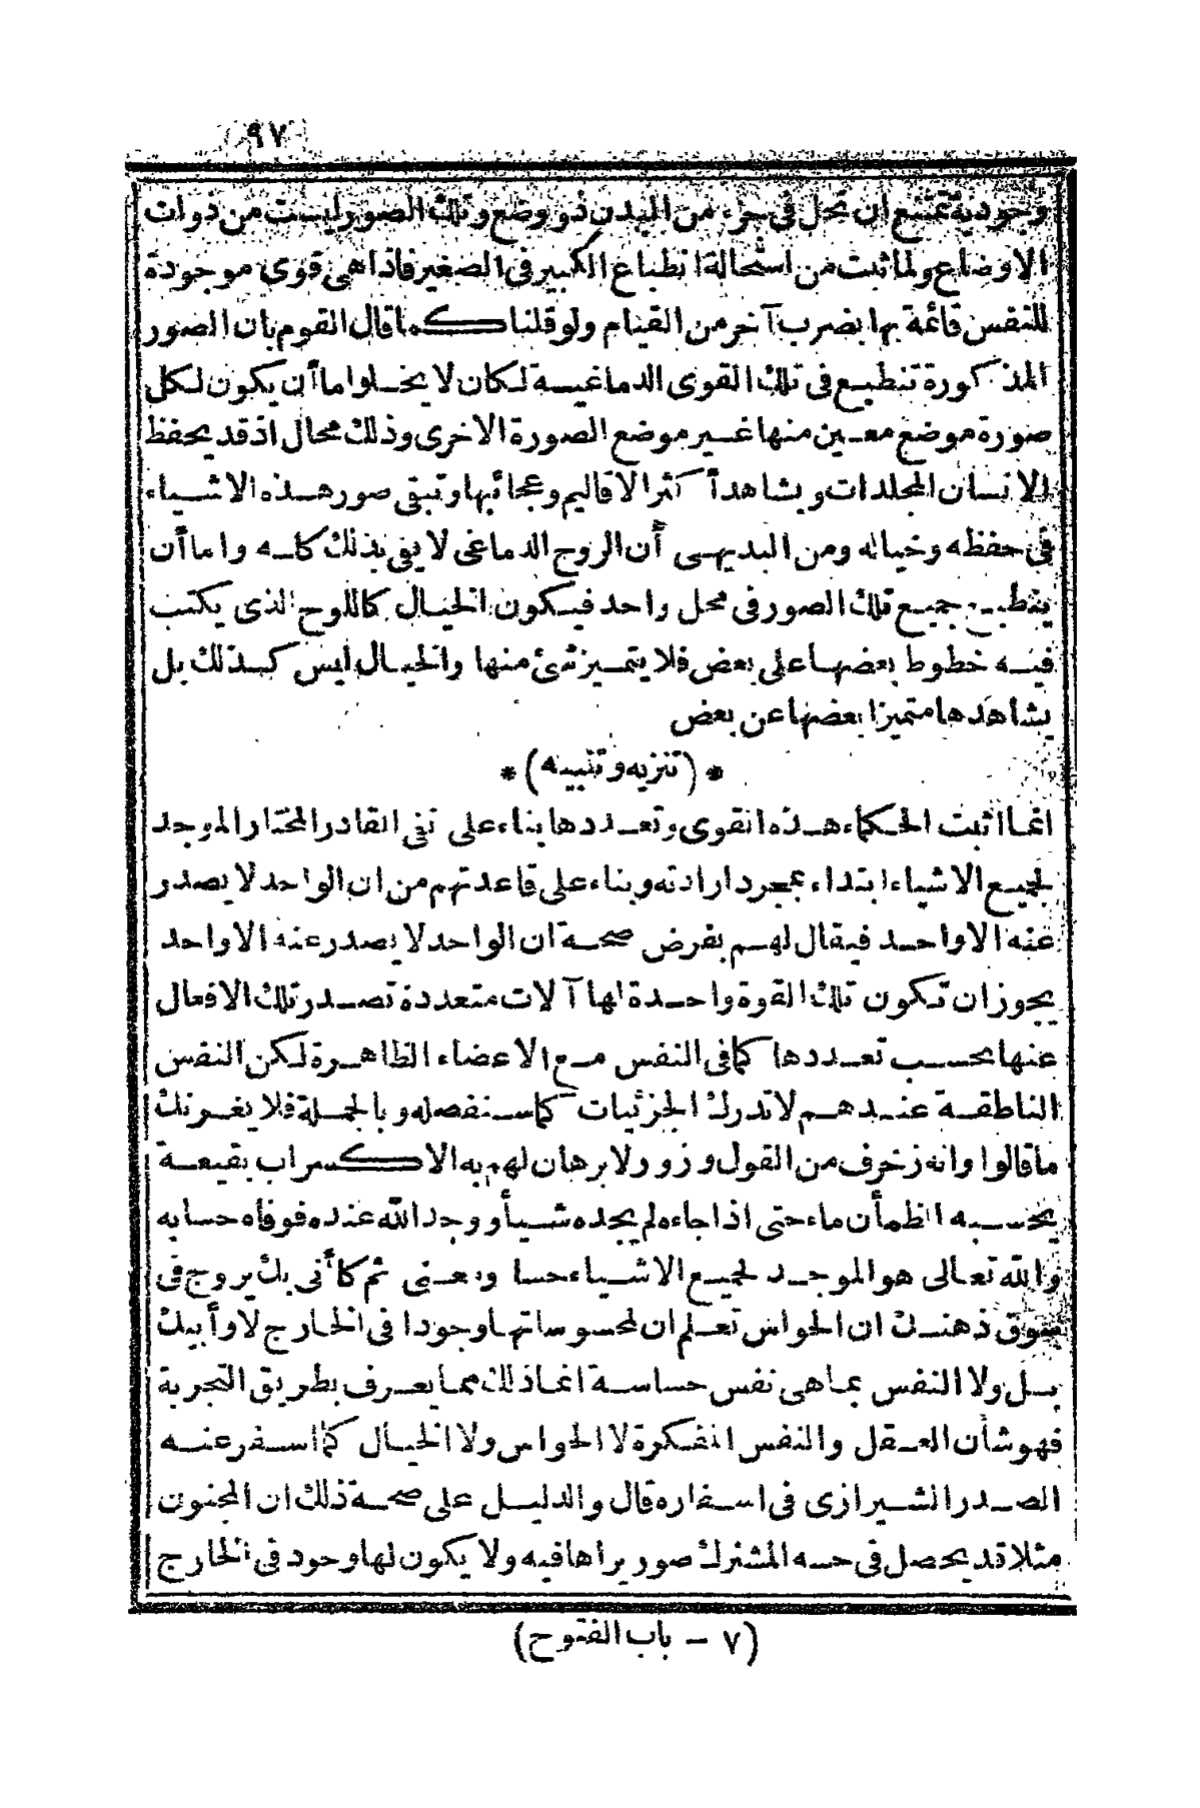 ٩٧
وجودية تمتنع ان تحل في جزء من البدن ذو وضع وتلك الصور ليست من ذوات
الاوضاع ولما ثبت من استحالة انطباع الكبير في الصغير فاذا هي قوى موجودة
للنفس قائمة بها بضرب آخر من القيام ولو قلنا كما قال القوم بان الصور
المذكورة تنطبع في تلك القوى الدماغية لكان لا يخلوا ما أن يكون لكل
صورة موضع معين منها غير موضع الصورة الاخرى وذلك محال اذ قد يحفظ
الانسان المجلدات ويشاهد أكثر الاقاليم وعجائبها وتبقى صور هذه الاشياء
في حفظه وخياله ومن البديهى أن الروح الدماغى لا يفي بذلك كله واما أن
ينطبع جميع تلك الصور في محل واحد فيكون الخيال كاللوح الذى يكتب
فيه خطوط بعضها على بعض فلا يتميز شئ منها والخيال ليس كذلك بل
يشاهدها متميزا بعضها عن بعض
* (تنزيه وتنبيه) *
انما اثبت الحكماء هذه القوى وتعددها بناء على نفي القادر المختار الموجد
لجميع الاشياء ابتداء بمجرد ارادته وبناء على قاعدتهم من ان الواحد لا يصدر
عنه الا واحد فيقال لهم بفرض صحة ان الواحد لا يصدر عنه الا واحد
يجوز ان تكون تلك القوة واحدة لها آلات متعددة تصدر تلك الافعال
عنها بحسب تعددها كما في النفس مع الاعضاء الظاهرة لكن النفس
الناطقة عندهم لا تدرك الجزئيات كما سنفصله وبالجملة فلا يغرنك
ما قالوا وانه زخرف من القول وزور ولا برهان لهم به الا كسراب بقيعة
يحسبه الظمأن ماء حتى اذا جاءه لم يجده شيأ ووجد الله عنده فوفاه حسابه
والله تعالى هو الموجد لجميع الاشياء حسا ومعنى ثم كأنى بك يروج في
سوق ذهنك ان الحواس تعلم ان لمحسوساتها وجودا في الخارج لا وأبيك
بل ولا النفس بما هى نفس حساسة انما ذلك مما يعرف بطريق التجربة
فهو شأن العقل والنفس المفكرة لا الحواس ولا الخيال كما أسفر عنه
الصدر الشيرازى في اسفاره قال والدليل على صحة ذلك ان المجنون
مثلا قد يحصل في حسه المشترك صور يراها فيه ولا يكون لها وجود في الخارج
(٧ - باب الفتوح)